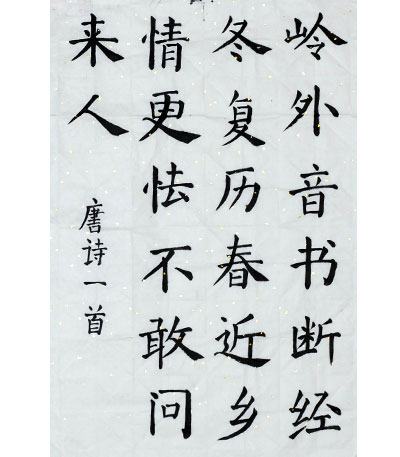 岭外音书断经
冬复历春近乡
情更怯不敢问
来人
唐诗一首